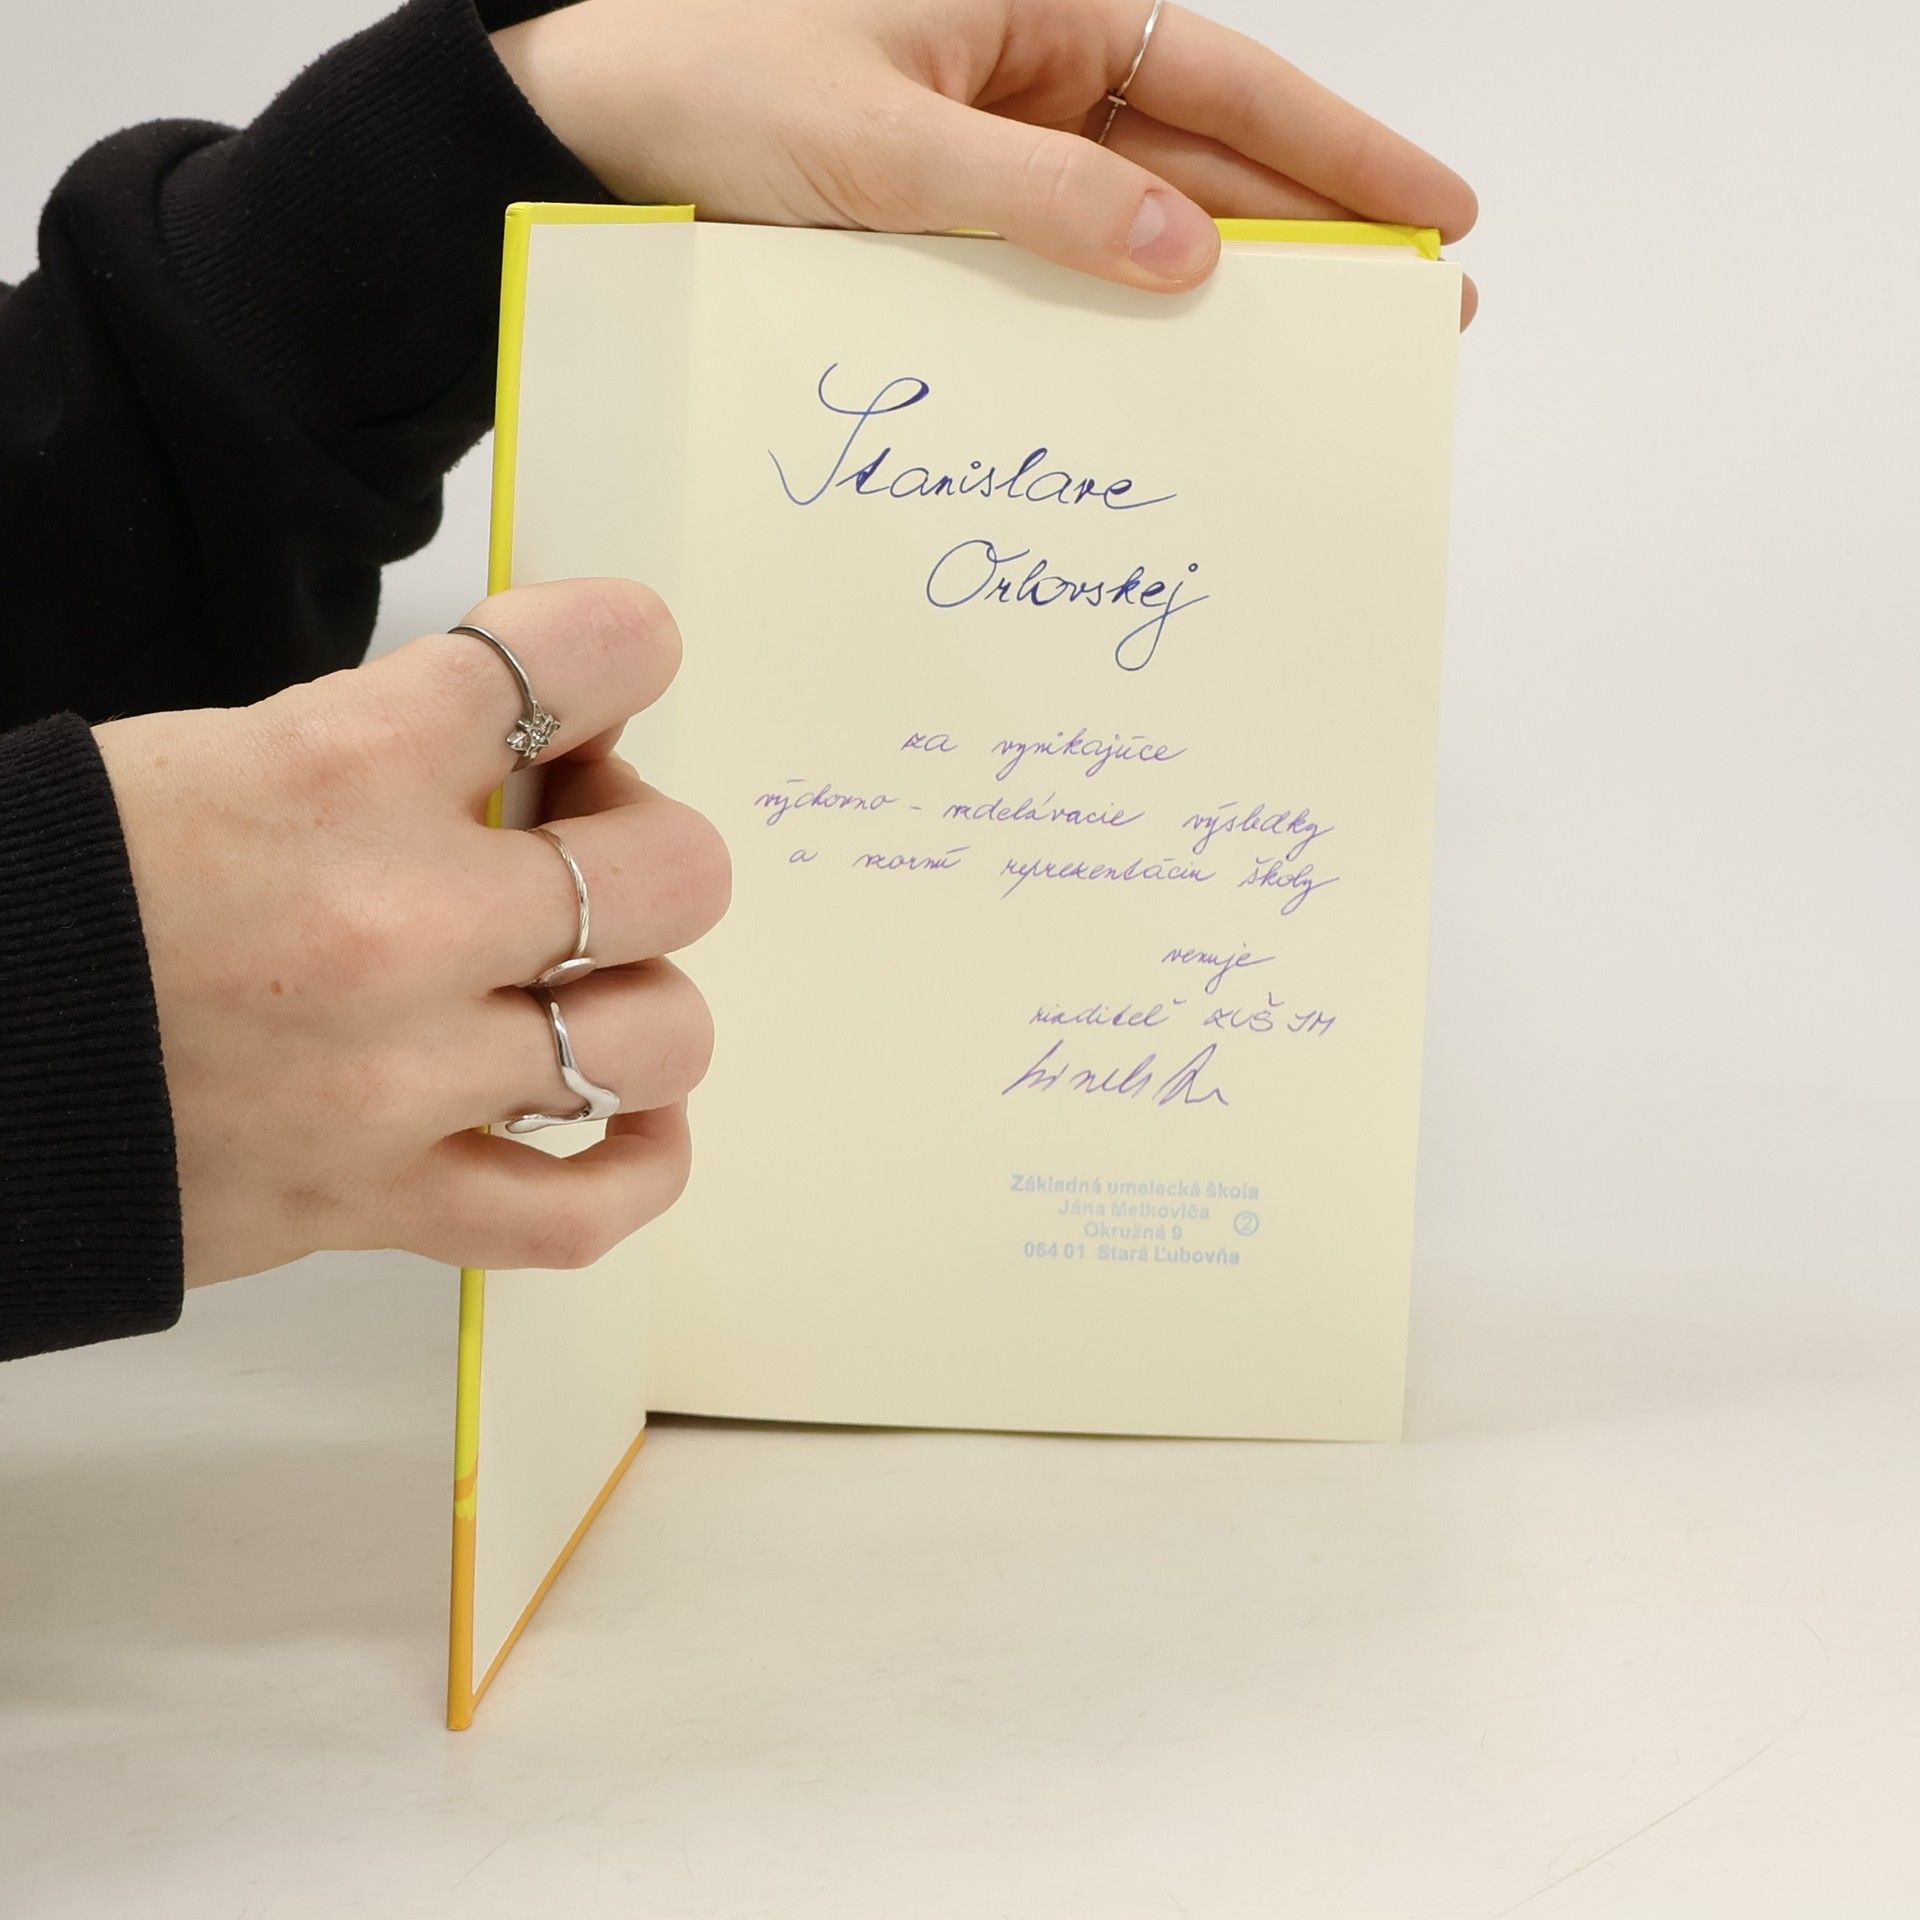 Stanislave
Orlovskej
za vynikajúce
výchovno - vzdelávacie výsledky
a vzornú reprezentáciu školy
venuje
riaditeľ ZUŠ JM
Základná umelecká škola
Jána Melkoviča
Okružná 9
064 01 Stará Ľubovňa
2